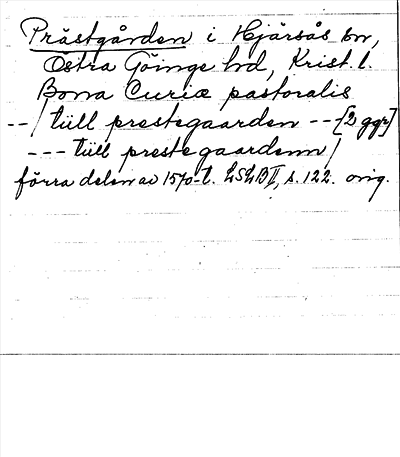 Prästgården i Hjärsås sn,
Östra Göinge hd, Krist. l.
Bona Curiæ pastoralis
--/ tüll prestegaarden --[2 ggr]
--- tüll prestegaardenn/
förra delen av 1570-t. LSLB II, s. 122. orig.